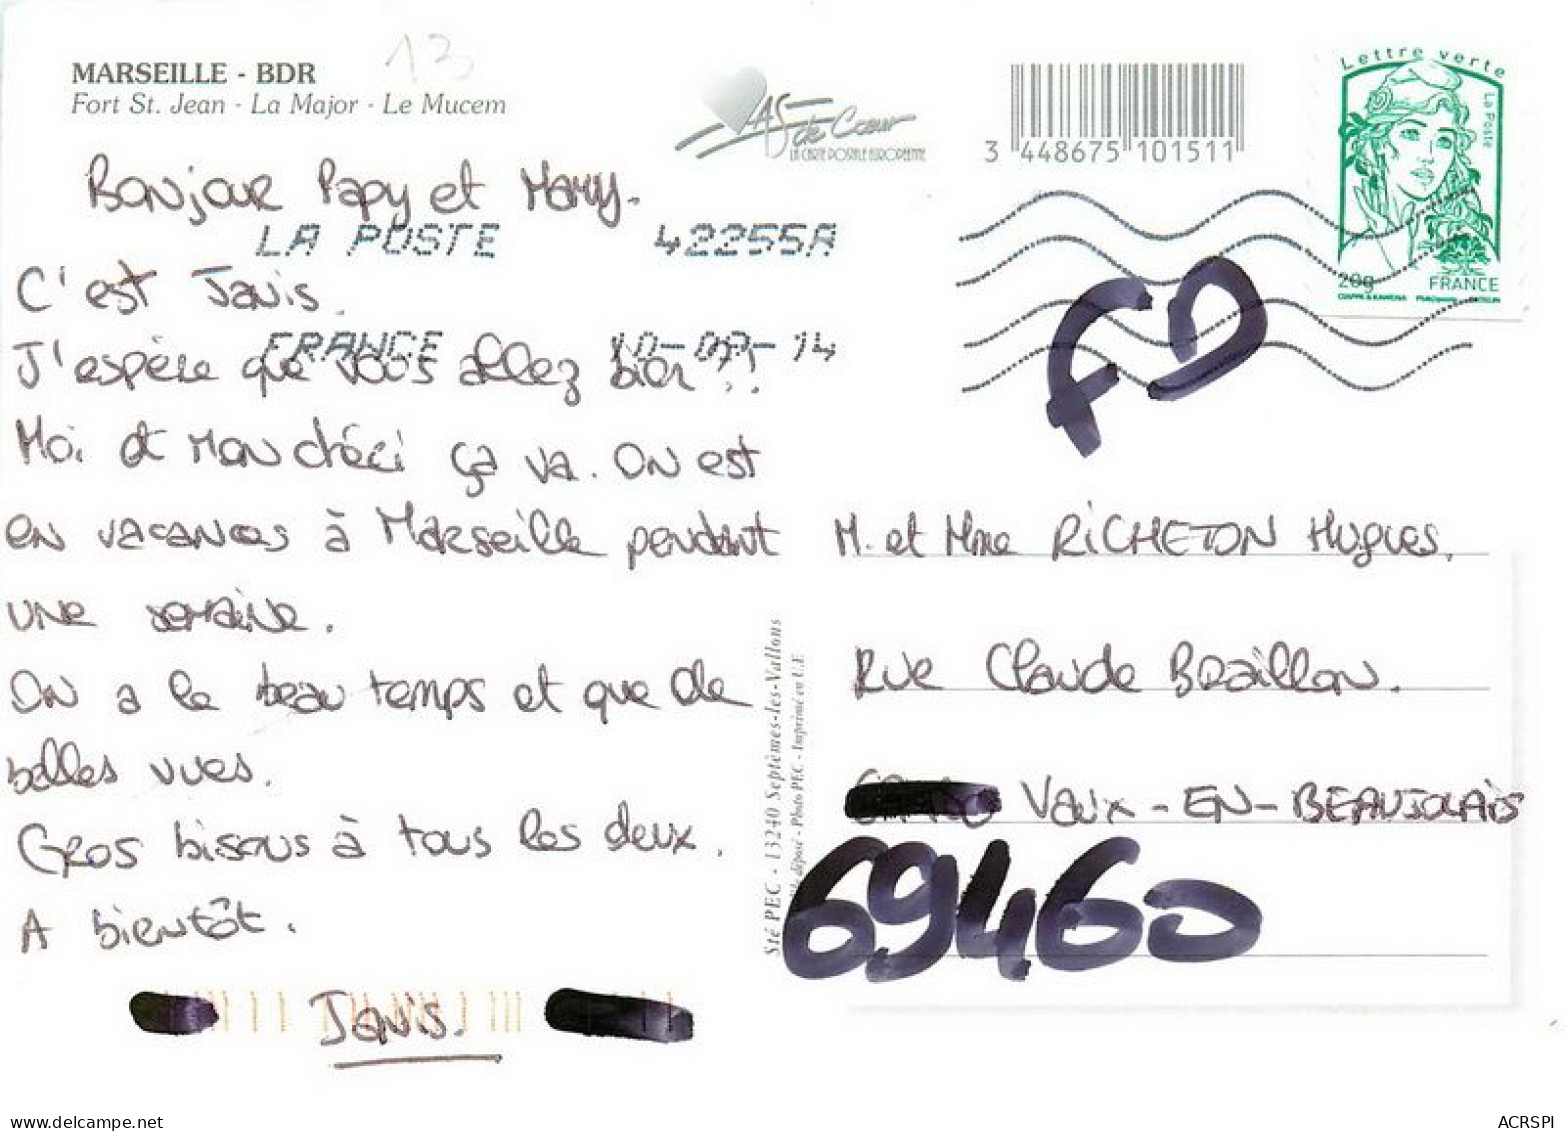 MARSEILLE - BDR
13
Fort St. Jean - La Major - Le Mucem
AS de Cœur
LA CARTE POSTALE EUROPÉENNE
3 448675 101511
Lettre verte
La Poste
20g
FRANCE
Bonjour Papy et Mamy.
LA POSTE 42255A
C'est Javis.
FRANCE 10-09-14
J'espère que vous allez bien ??
Moi et mon chéri ça va. On est
en vacances à Marseille pendant
une semaine.
On a le beau temps et que de
belles vues.
Gros bisous à tous les deux.
A bientôt.
Javis.
FD
M. et Mme RICHETON Hugues.
Rue Claude Braillon.
Vaux-EN-BEAUJOLAIS
69460
Sté PEC - 13240 Septèmes-les-Vallons
déposé - Photo PEC - Imprimé en U.E
www.delcampe.net
ACRSPI